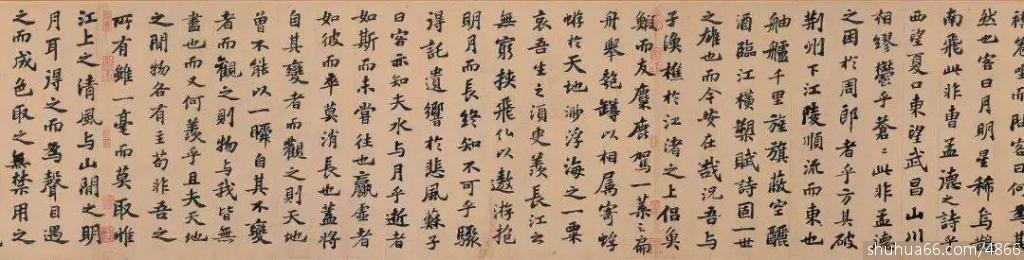 危坐而問客曰何為其
然也客曰月明星稀烏鵲
南飛此非曹孟德之詩乎
西望夏口東望武昌山川
相繆鬱乎蒼〻此非孟德
之困於周郎者乎方其破
荊州下江陵順流而東也
舳艫千里旌旗蔽空釃
酒臨江橫槊賦詩固一世
之雄也而今安在哉況吾与
子漁樵於江渚之上侶魚
鰕而友麋鹿駕一葉之扁
舟舉匏罇以相属寄蜉
蝣於天地渺浮海之一粟
哀吾生之須臾羨長江之
無窮挾飛仙以遨游抱
明月而長終知不可乎驟
得託遺響於悲風蘇子
曰客亦知夫水与月乎逝者
如斯而未嘗往也贏虛者
如彼而卒莫消長也蓋將
自其變者而觀之則天地
曾不能以一瞬自其不變
者而觀之則物与我皆無
盡也而又何羨乎且夫天地
之間物各有主苟非吾之
所有雖一毫而莫取惟
江上之清風与山間之明
月耳得之而為聲目遇
之而成色取之無禁用之
shuhua66.com/4866